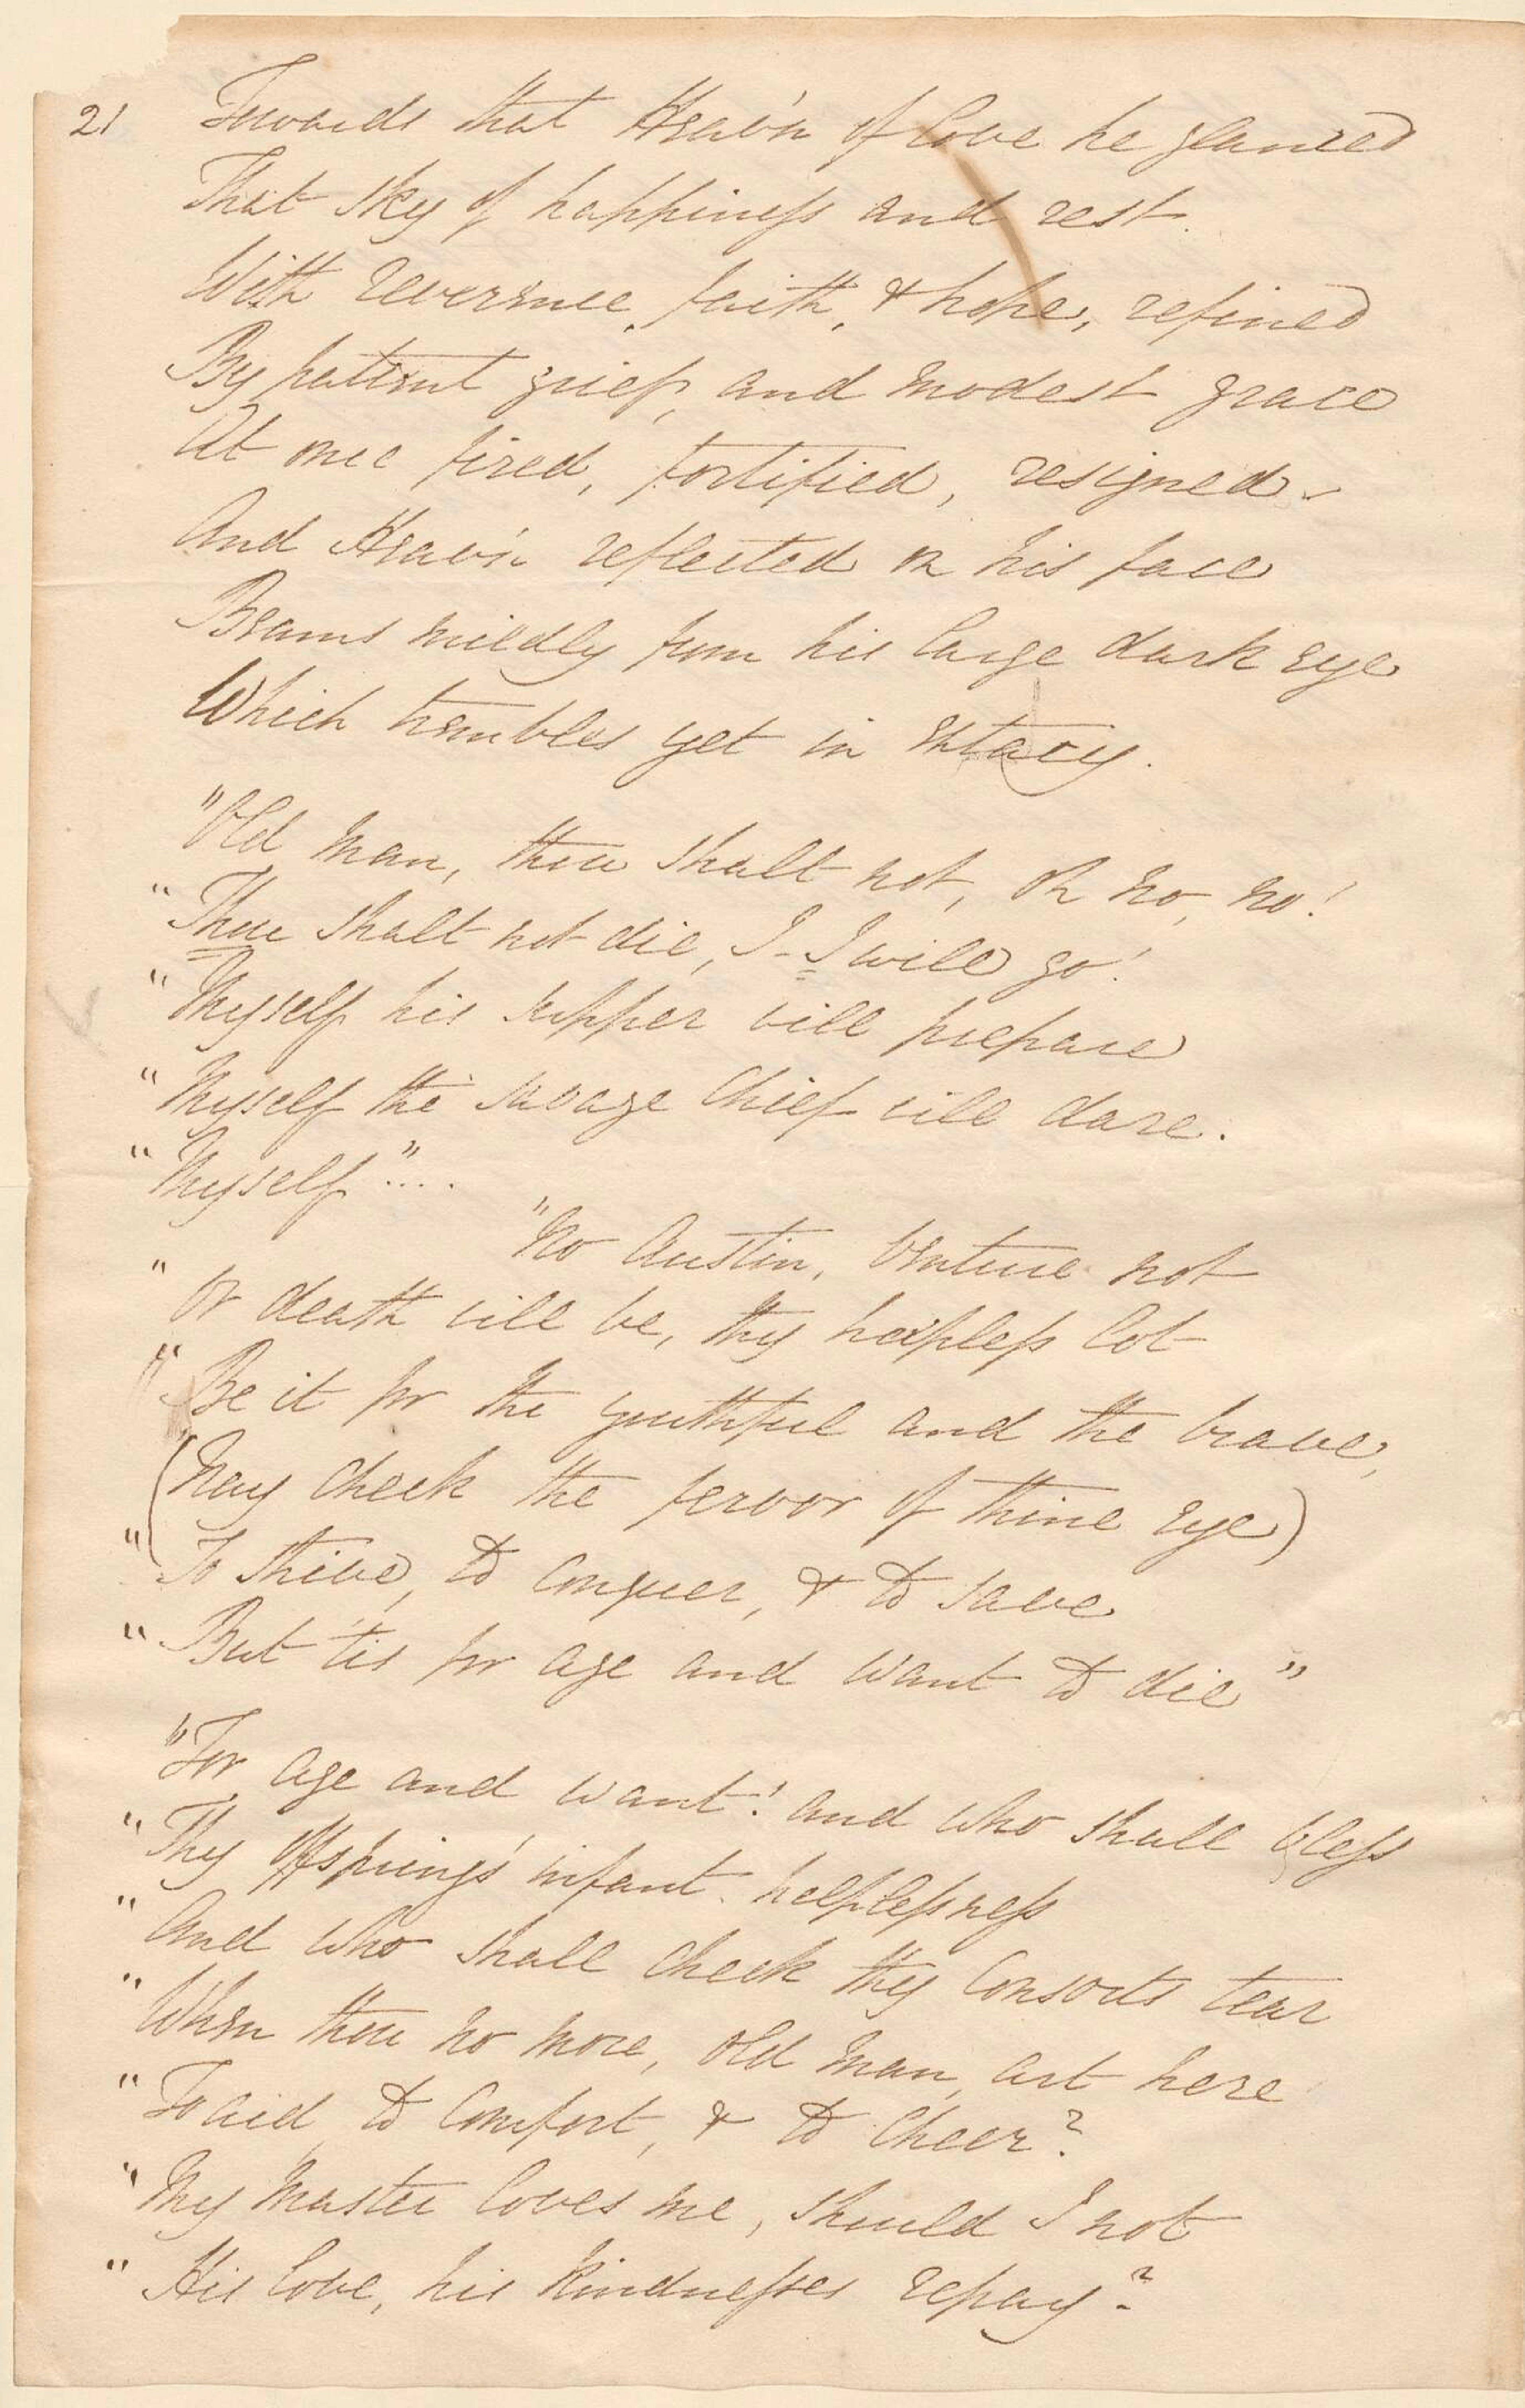 21 Towards that Heav'n of love he glanced
That sky of happiness and rest.
With reverence, faith, & hope, refined
By patient grief, and modest grace
At once fired, fortified, resigned.
And Heav'n reflected on his face
Beams mildly from his large dark eye
Which trembles yet in extacy.
"Old man, thou shalt not, oh no, no!
"Thou shalt not die, I - I will go!
"Myself his supper will prepare
"Myself the savage chief will dare.
"Myself"....
"No Austin, venture not
"Or death will be, thy hapless lot
"Be it for the youthful and the brave,
(Nay check the fervor of thine eye)
"To strive, to conquer, & to save
"But 'tis for age and want to die"
"For age and want! and who shall bless
"Thy offspring's infant helplessness
"And who shall check thy Consorts tear
"When thou no more, old man, art here
"To aid, to comfort, & to cheer?
"My master loves me, should I not
"His love, his kindnesses repay?